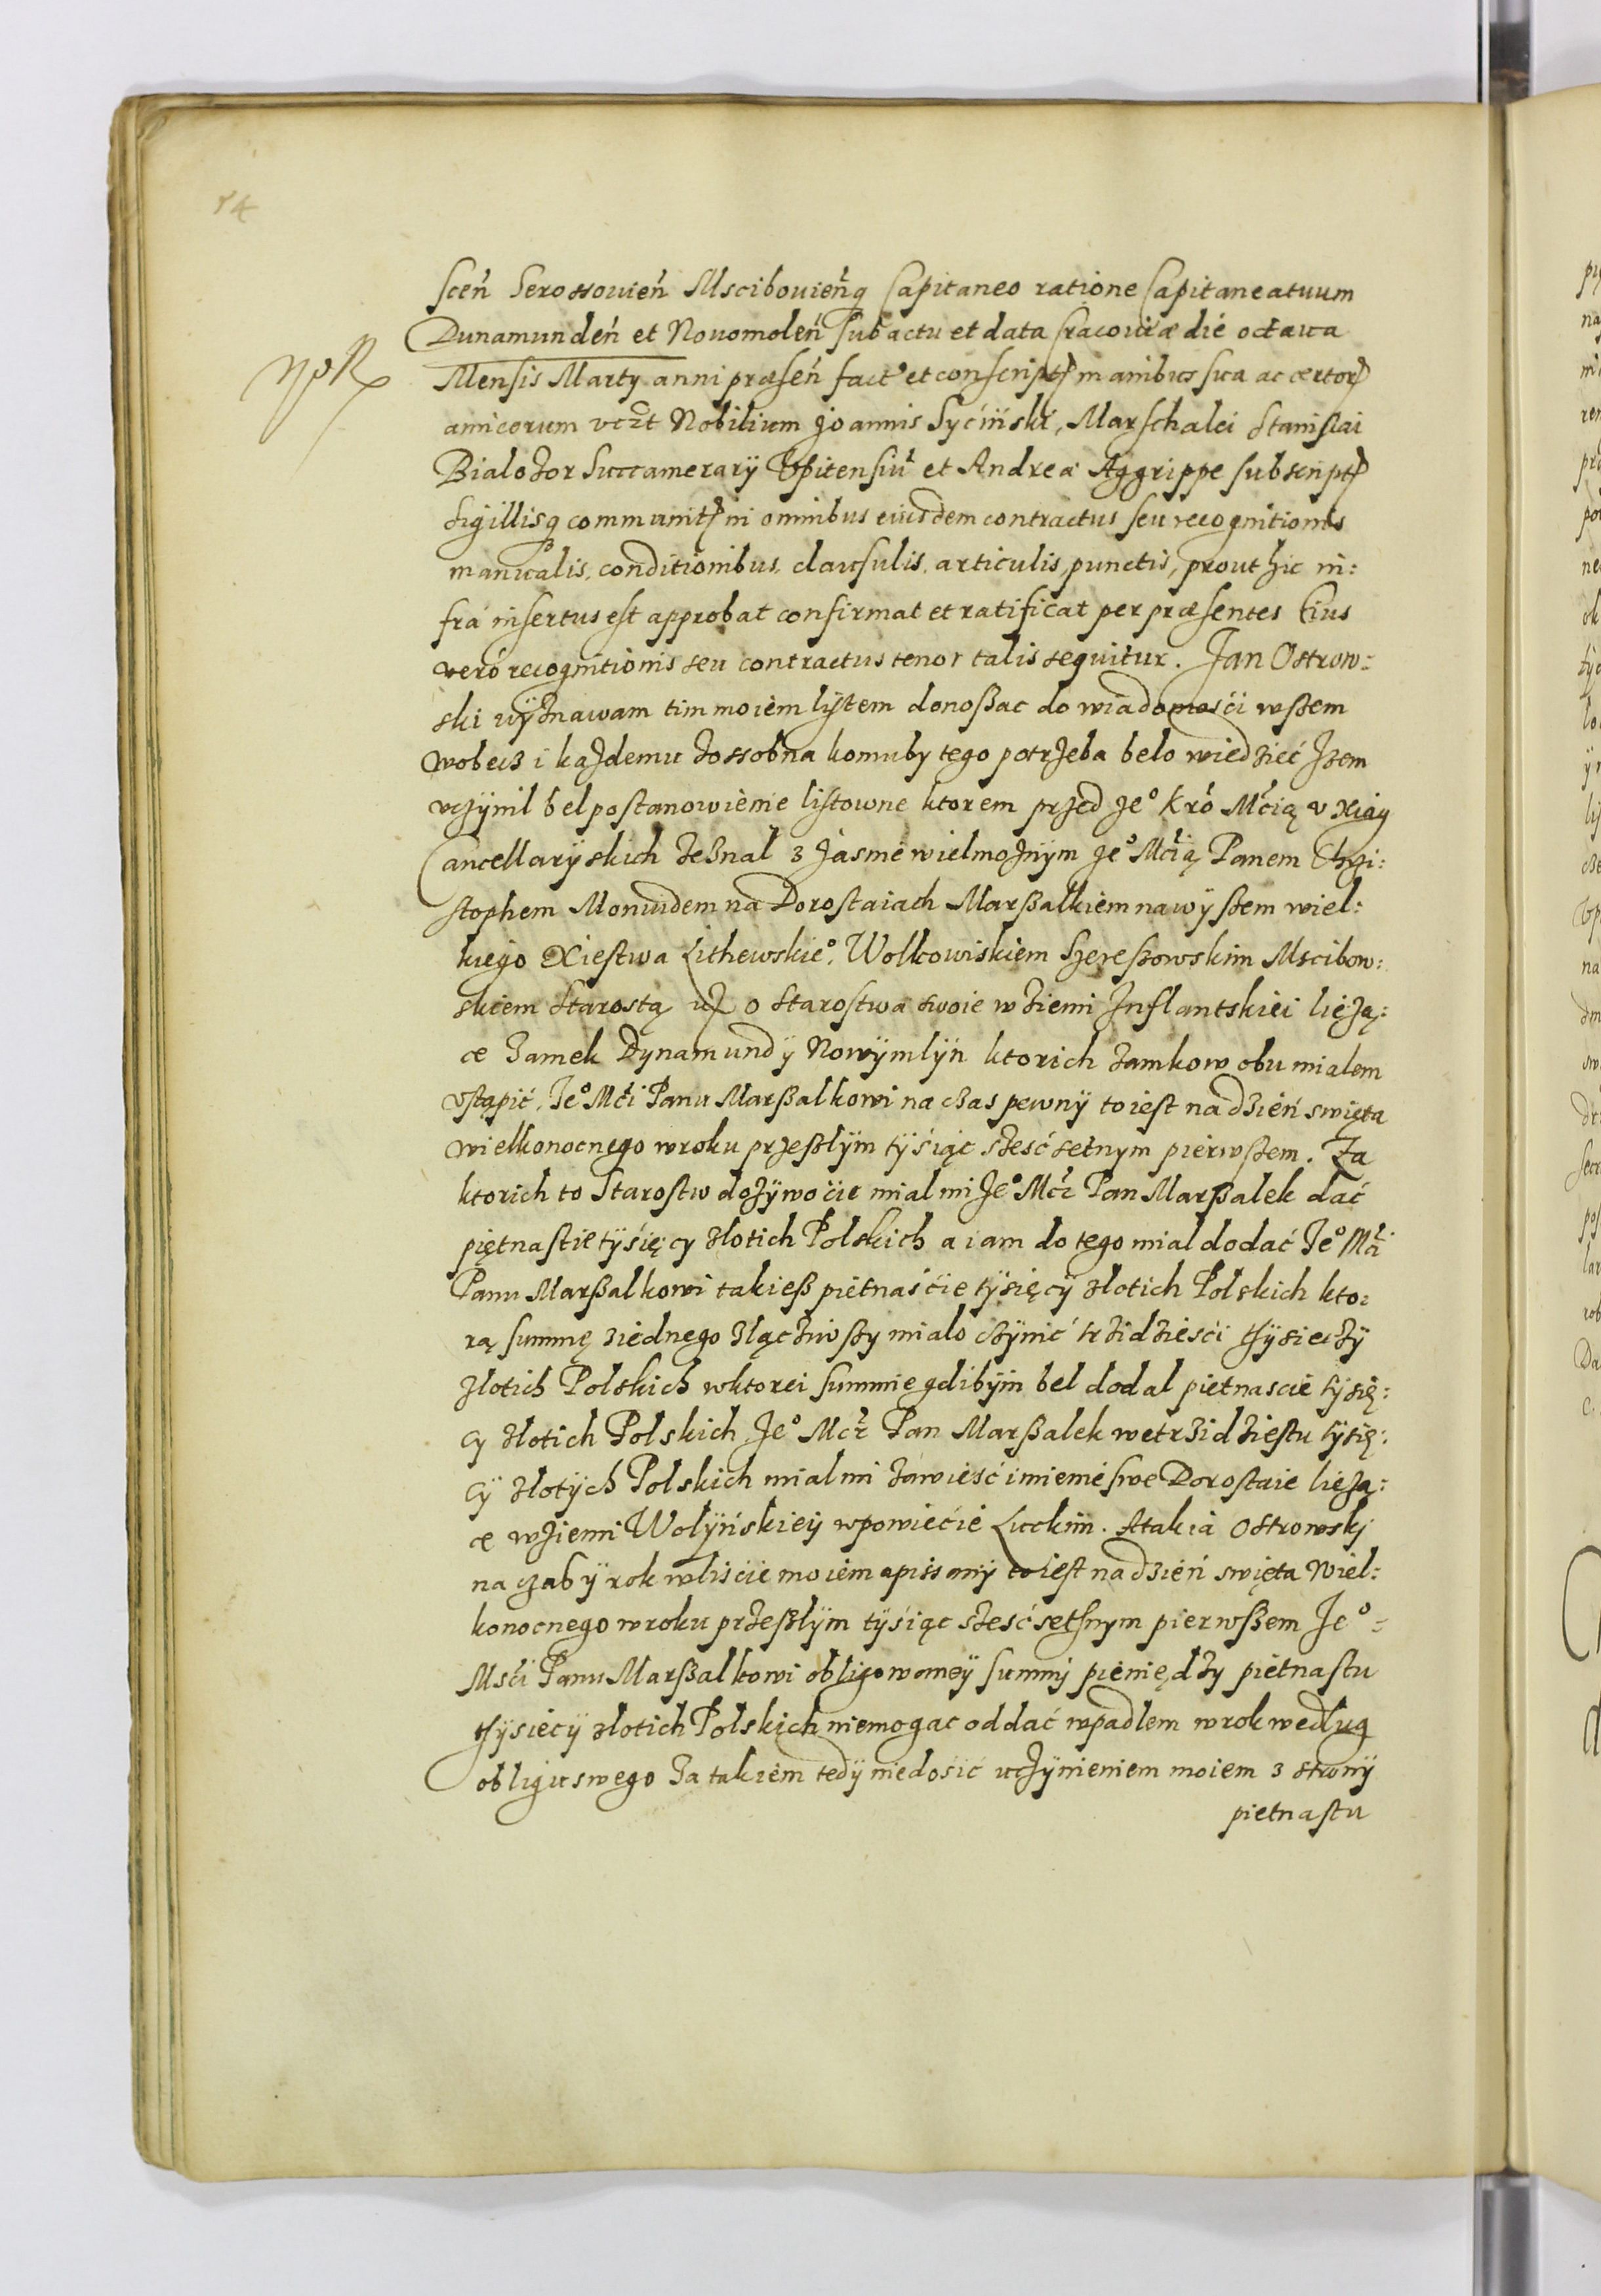 84
sceń Serossowień Mscibovień̃q Capitaneo ratione Capitaneatuum
Dunamundeń et Novomoleń sub actu et data Cracoviæ die octava
Mensis Marty anni præseń fact° et conscript manibus sua ac certor
amicorum vczt Nobilium Joannis Syciński, Marschalci Stanislai
Bialozor Succamerarÿ Vpitensiu et Andreæ Aggrippe subscript
sigillisq communit in omnibus eiusdem contractus seu recognitionis
manualis, conditionibus, clausulis, articulis, punctis, prout hic in:
fra insertus est approbat confirmat et ratificat per præsentes Eius
veró recognitionis seu contractus tenor talis sequitur. Jan Ostrow:
ski wÿznawam tim moiem lÿstem donoßac do wiadomości wßem
wobecz i kazdemu zossobna komuby tego potrzeba belo wiedzieć Izem
vczÿnil bel postanowienie listowne ktorem przed Je° Kró Mćią v Xiąg
Cancellarÿskich zeznal z Jasnie wielmoznÿm Je° Mćią Panem Chrzi:
stophem Moniuidem na Dorostaiach Marßalkiem nawÿßem wiel:
kiego Xiestwa Lithewskie°, Wolkowiskiem Szereßowskim Mscibow:
skiem Starostą iz o Starostwa swoie w ziemi Inflantskiei lieżą:
ce Zamek Dynamundÿ Nowÿmlÿn ktorich zamkow obu mialem
vstąpić Je° Mći Panu Marßalkowi na czas pewnÿ to iest na dzień swięta
wielkonocnego w roku przeßlÿm tÿsiąc sześć setnym pierwßem. Za
ktorich to Starostw dozÿwocie mial mi Je° Mćz Pan Marßalek dać
piętnastie tÿsięcy zlotich Polskich a iam do tego mial dodać Je° Mći
Panu Marßalkowi takieß pietnaście tÿsięcÿ zlotich Polskich kto:
rą summę ziednego złącziwßy mialo czÿnić trzidzieści tÿsieczÿ
zlotich Polskich w ktorei summie gdibÿm bel dodal pietnascie tÿsię:
cy zlotich Polskich Je° Mcz Pan Marßalek we trzidziestu tÿsię:
cÿ zlotÿch Polskich mial mi zawieść imienie swe Dorostaie lieżą:
ce w ziemi Wolÿńskieÿ w powiecie Luckim. A tak ia Ostrowski
na czas ÿ rok w liscie moiem opisanÿ to iest na dzień swięta Wiel:
konocnego w roku przeßlÿm tÿsiąc sześć setnym pierwßem Je°
Mśći Panu Marßalkowi obligowaneÿ summi pieniędzy pietnastu
tÿsiecÿ zlotich Polskich niemogac oddać wpadlem w rok według
obligu swego Za takiem tedÿ niedosić vczÿnieniem moiem z stronÿ
pietnastu